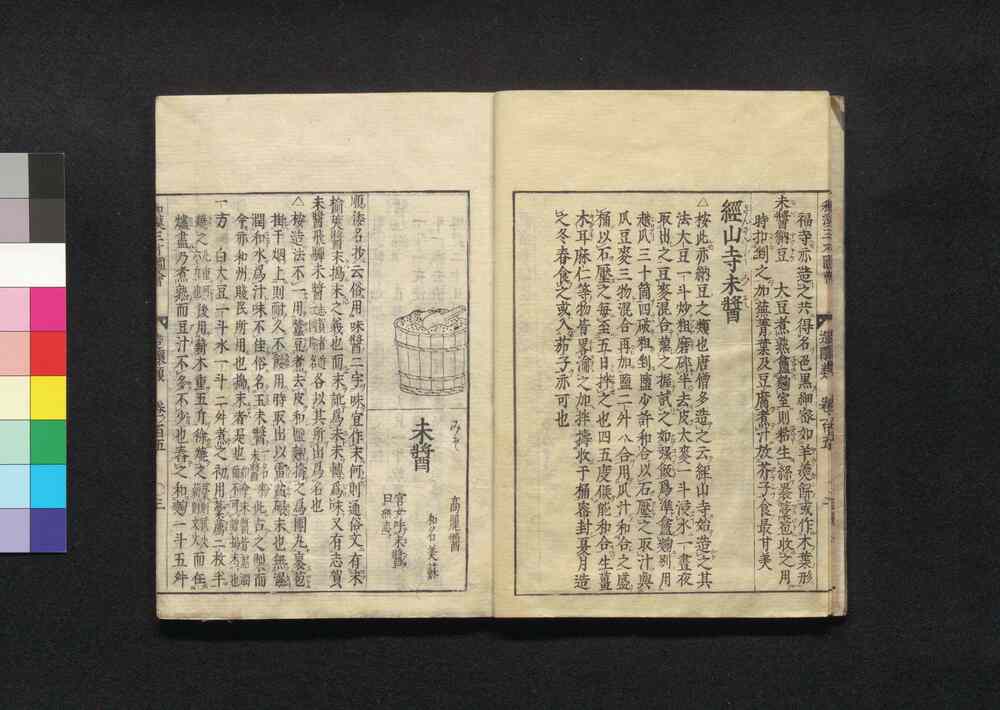 福寺亦造之共得名色黒細密如羊羹餅或作木葉形
未醬納豆　大豆煮熟盦麹室則粘生絲晨裹苞收之用
時扣剉之加蕪菁葉及豆腐煮汁放芥子食最甘美
經山寺未醬
△按此亦納豆之類也唐僧多造之云經山寺始造之其
法大豆一斗炒粗磨碎半去皮大麥一斗浸水一晝夜
取出之豆麥混合蒸之握試之如強飯爲準盦麹別用
越瓜三十箇四破粗剉鹽少許和合以石壓之取汁與
瓜豆麥三物混合再加鹽二升八合用瓜汁和合之盛
桶以石壓之每至五日拌之也四五度俟能和合生薑
木耳麻仁等物皆畧瀹之加拌擣收于桶密封夏月造
之冬春食之或入茄子亦可也
みそ
未醬
高麗醬
和名美蘇
官女呼未醬
曰
順倭名抄云俗用味醬二字味宜作末何則通俗文有末
榆莢醬末搗末之義也而末訛爲未未轉爲味又有志賀
未醬飛驒未醬志賀者近各以其所出爲名也
△按造法不一用大豆煮去皮和鹽麹擣之爲團丸裹苞
掛于烟上則耐久不用時取出以
潤和水爲汁味不佳俗名玉未醬此古之製而
今亦和州賤民所用也搗末者是也
一方白大豆一斗水一斗二升煮之初用藁薦二枚半
後用薪木重五斤徐燒之而任
爐盡乃煮熟而豆汁不多不少也舂之和麹一斗五升